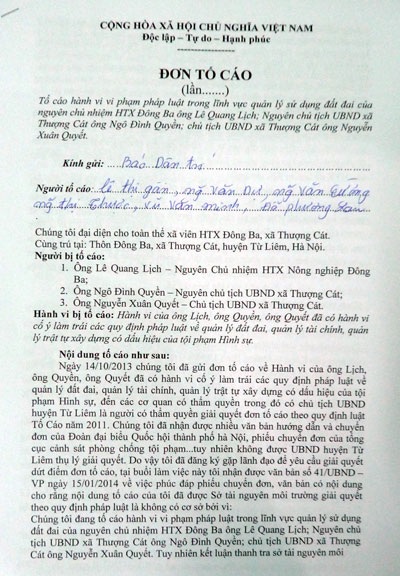 CỘNG HÒA XÃ HỘI CHỦ NGHĨA VIỆT NAM
Độc lập – Tự do – Hạnh phúc
ĐƠN TỐ CÁO
(lần.......)
Tố cáo hành vi vi phạm pháp luật trong lĩnh vực quản lý sử dụng đất đai của
nguyên chủ nhiệm HTX Đông Ba ông Lê Quang Lịch; Nguyên chủ tịch UBND xã
Thượng Cát ông Ngô Đình Quyền; chủ tịch UBND xã Thượng Cát ông Nguyễn
Xuân Quyết.
Kính gửi: Báo Dân trí
Người tố cáo: lê thị gán, ng̃ văn Dư, ng̃ văn Cường
ng̃ thị Thước, vũ văn minh, Đỗ phương
Chúng tôi đại diện cho toàn thể xã viên HTX Đông Ba, xã Thượng Cát.
Cùng trú tại: Thôn Đông Ba, xã Thượng Cát, huyện Từ Liêm, Hà Nội.
Người bị tố cáo:
1. Ông Lê Quang Lịch – Nguyên Chủ nhiệm HTX Nông nghiệp Đông
Ba;
2. Ông Ngô Đình Quyền – Nguyên Chủ tịch UBND xã Thượng Cát;
3. Ông Nguyễn Xuân Quyết – Chủ tịch UBND xã Thượng Cát.
Hành vi bị tố cáo: Hành vi của ông Lịch, ông Quyền, ông Quyết đã có hành vi
cố ý làm trái các quy định pháp luật về quản lý đất đai, quản lý tài chính, quản
lý trật tự xây dựng có dấu hiệu của tội phạm Hình sự.
Nội dung tố cáo như sau:
Ngày 14/10/2013 chúng tôi đã gửi đơn tố cáo về Hành vi của ông Lịch,
ông Quyền, ông Quyết đã có hành vi cố ý làm trái các quy định pháp luật về
quản lý đất đai, quản lý tài chính, quản lý trật tự xây dựng có dấu hiệu của tội
phạm Hình sự, đến các cơ quan có thẩm quyền trong đó có chủ tịch UBND
huyện Từ Liêm là người có thẩm quyền giải quyết đơn tố cáo theo quy định luật
Tố Cáo năm 2011. Chúng tôi đã nhận được nhiều văn bản hướng dẫn và chuyển
đơn của Đoàn đại biểu Quốc hội thành phố hà Nội, phiếu chuyển đơn của tổng
cục cảnh sát phòng chống tội phạm...tuy nhiên không được UBND huyện Từ
Liêm thụ lý giải quyết. Do vậy tôi đã đăng ký gặp lãnh đạo để yêu cầu giải quyết
dứt điểm đơn tố cáo, tại buổi làm việc này tôi nhận được văn bản số 41/UBND –
VP ngày 15/01/2014 về việc phúc đáp phiếu chuyển đơn, văn bản có nội dung
cho rằng nội dung tố cáo của tôi đã được Sở tài nguyên môi trường giải quyết
theo quy định pháp luật là không có cơ sở bởi vì:
Chúng tôi đang tố cáo hành vi vi phạm pháp luật trong lĩnh vực quản lý sử dụng
đất đai của nguyên chủ nhiệm HTX Đông Ba ông Lê Quang Lịch; Nguyên chủ
tịch UBND xã Thượng Cát ông Ngô Đình Quyền; chủ tịch UBND xã Thượng
Cát ông Nguyễn Xuân Quyết. Tuy nhiên kết luận thanh tra sở tài nguyên môi